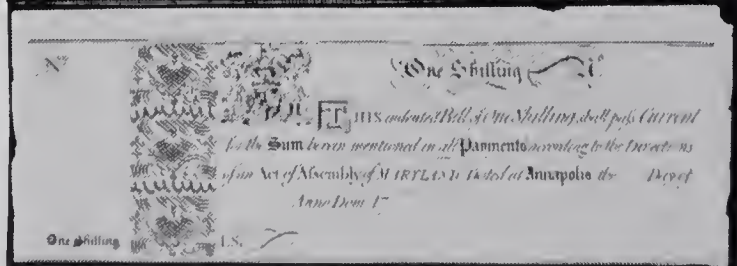 No
One Shilling No
THIS indented Bill of One Shilling shall pass Current
for the Sum herein mentioned in all Payments according to the Directions
of an Act of Assembly of MARYLAND. Dated at Annapolis the Day of
Anno Dom. 17
One Shilling 1S.